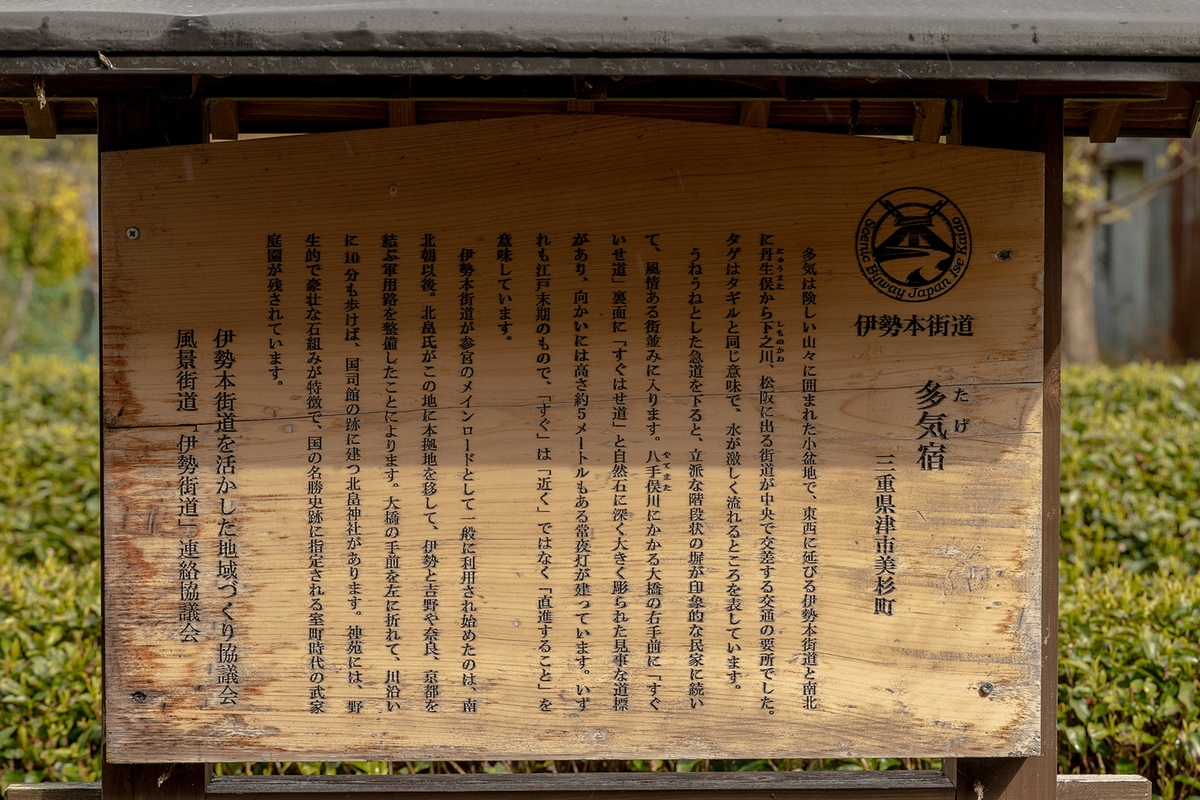 Scenic Byway Japan Ise Kaido
伊勢本街道
多気宿
たげ
三重県津市美杉町
多気は険しい山々に囲まれた小盆地で、東西に延びる伊勢本街道と南北
に丹生俣から下之川、松阪に出る街道が中央で交差する交通の要所でした。
にゅうまた
しものかわ
タゲはタギルと同じ意味で、水が激しく流れるところを表しています。
うねうねとした急道を下ると、立派な階段状の塀が印象的な民家に続い
て、風情ある街並みに入ります。八手俣川にかかる大橋の右手前に「すぐ
やてまた
いせ道」裏面に「すぐはせ道」と自然石に深く大きく彫られた見事な道標
があり、向かいには高さ約5メートルもある常夜灯が建っています。いず
れも江戸末期のもので、「すぐ」は「近く」ではなく「直進すること」を
意味しています。
伊勢本街道が参宮のメインロードとして一般に利用され始めたのは、南
北朝以後。北畠氏がこの地に本拠地を移して、伊勢と吉野や奈良、京都を
結ぶ軍用路を整備したことによります。大橋の手前を左に折れて、川沿い
に10分も歩けば、国司館の跡に建つ北畠神社があります。神苑には、野
生的で豪壮な石組みが特徴で、国の名勝史跡に指定される室町時代の武家
庭園が残されています。
伊勢本街道を活かした地域づくり協議会
風景街道「伊勢街道」連絡協議会